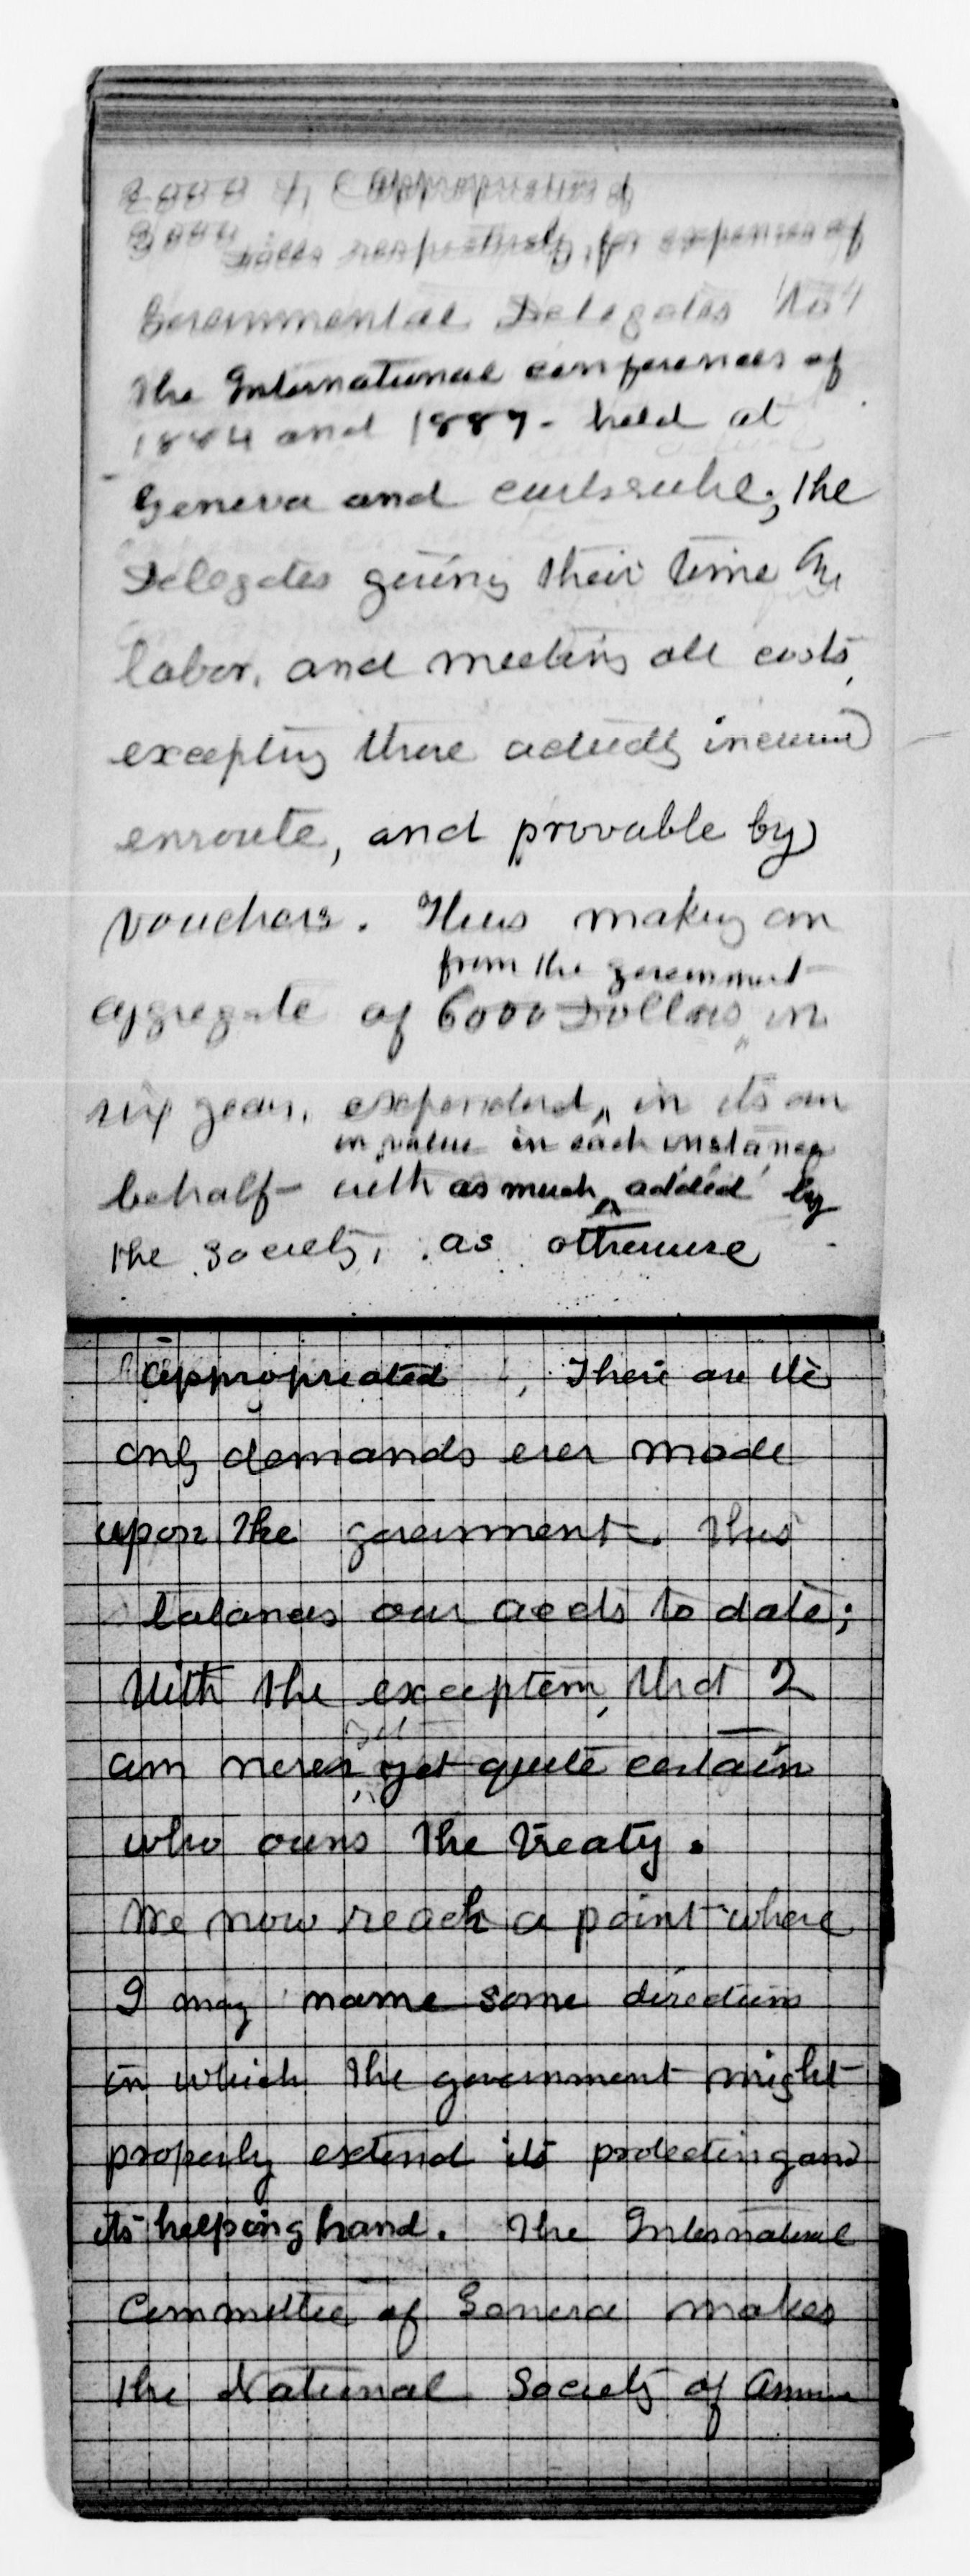 appropriations of
3000 respectively, for expenses of
Governmental Delegates to
the International conferences of
1884 and 1887 - held at
Geneva and Carlsruhe; the
Delegates giving their time &
labor, and meeting all costs,
excepting those actually incurred
enroute, and provable by
vouchers. Thus making an
from the government
aggregate of 6000 Dollars ^ in
six years, expended ^ in its own
in value in each instance
behalf - with as much ^ added by
the society, as otherwise
appropriated. These are the
only demands ever made
upon the government. This
balances our accts to date;
With the exception, that I
am never ^ yet quite certain
who owns the treaty.
We now reach a point where
I may name some directions
in which the government might
properly extend its protecting and
its helping hand. The International
Committee of Geneva makes
the National Society of